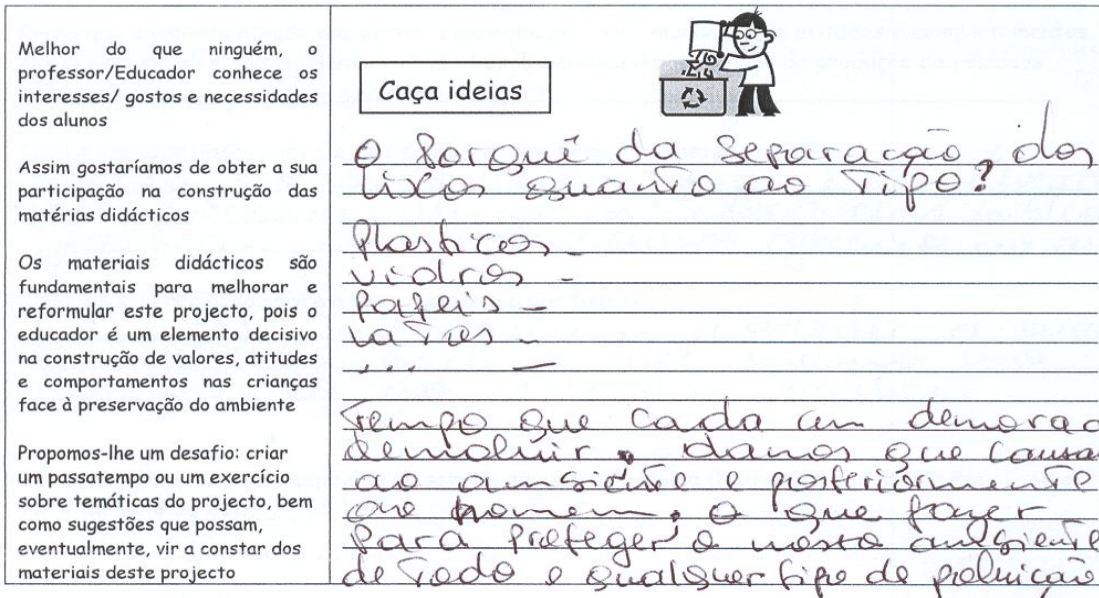 Melhor do que ninguém, o
professor/Educador conhece os
interesses/ gostos e necessidades
dos alunos
Assim gostaríamos de obter a sua
participação na construção das
matérias didácticos
Os materiais didácticos são
fundamentais para melhorar e
reformular este projecto, pois o
educador é um elemento decisivo
na construção de valores, atitudes
e comportamentos nas crianças
face à preservação do ambiente
Propomos-lhe um desafio: criar
um passatempo ou um exercício
sobre temáticas do projecto, bem
como sugestões que possam,
eventualmente, vir a constar dos
materiais deste projecto
Caça ideias
O Porquê da separação, dos
lixos quanto ao Tipo?
Plasticos -
vidros -
papeis -
latas -
... -
Tempo que cada um demora a
demoluir. danos que causam
ao ambiente e posteriormente
ao homem. o que fazer
Para Proteger o nosso ambiente
de todo e qualquer tipo de poluição